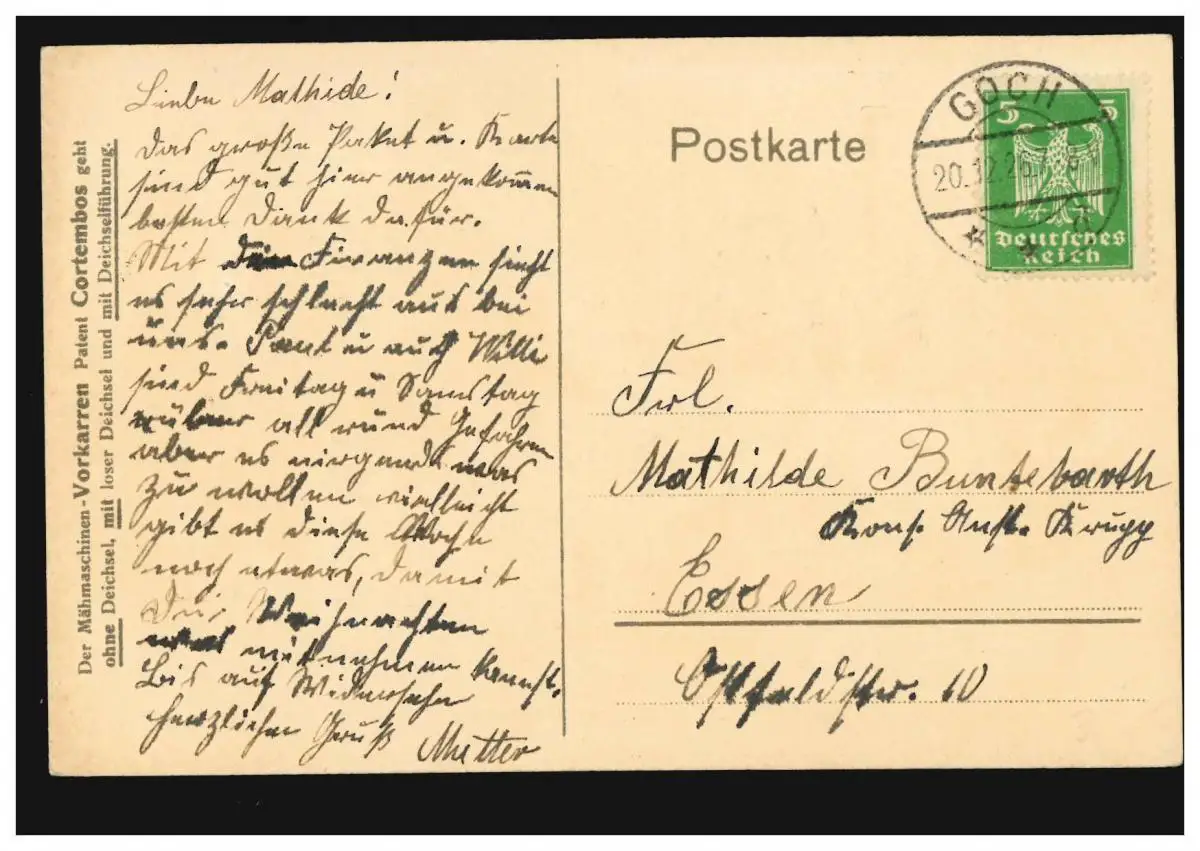 Der Mähmaschinen-Vorkarren Patent Cortembos geht
ohne Deichsel, mit loser Deichsel und mit Deichselführung.
Liebe Mathide!
Das große Paket u. Karte
sind gut hier angekommen
besten Dank dafür.
Mit den Firangen sieht
es sehr schlecht aus bei
uns. Pant u auch Willi
sind Freitag u Samstag
über all rund Gefahren
aber es nirgends was
zu wollen vielleicht
gibt es diese Woche
noch etwas, damit
Du Weihnachten
was mitnehmen kannst.
Bis auf Widersehn
herzlichen Gruß Mutter
Postkarte
GOCH
20.12.26.7
5 5
Deutsches
Reich
Frl.
Mathilde Buntebarth
Kons. Anst. Krupp
Essen
Ostfeldstr. 10